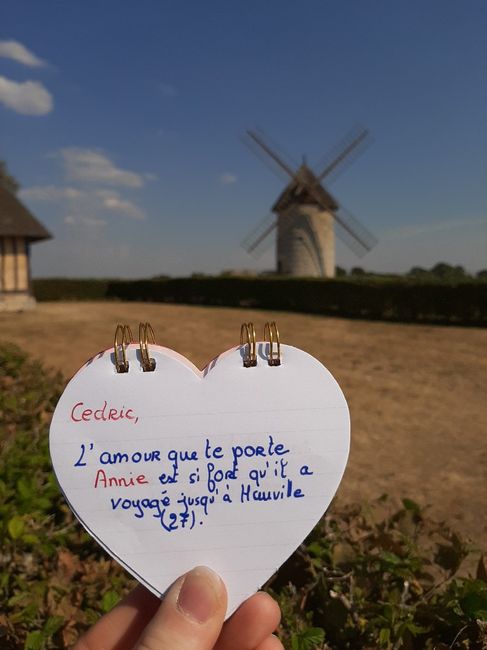 Cedric,
L'amour que te porte
Annie est si fort qu'il a
voyagé jusqu'à Hauville
(27).